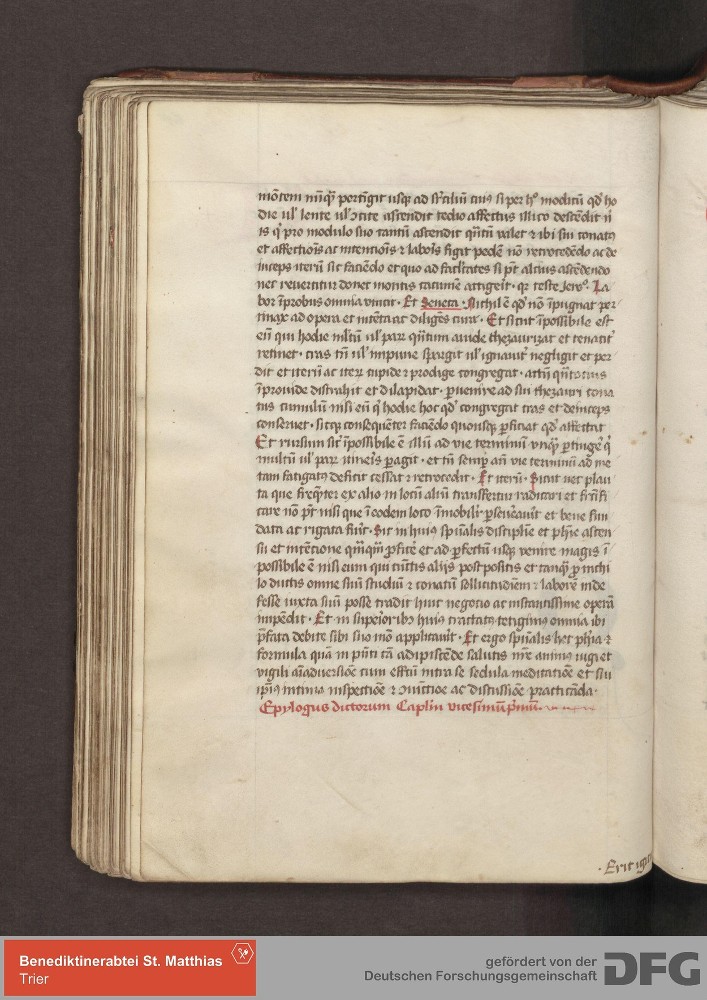 mōtem nūq̄ꝫ pertīgit usqꝫ ad sūcilīū eius si per hº modicū qd̕ ho
die ul̕ lente ul̕ ɔtite ascendit tedio affectus illico descēdit n̄
is q̕ pro modulo suo tantū ascendit qn̄tū valet ⁊ ibi sui conatꝰ
et affectiōis ac intentiōis ⁊ laboīs figit pedē nō retrocedēdo ac de
inceps iterū sic faciēdo et quo ad facultates si p̄t alcius ascēdendo
nec revertitur donec montis cacumē attīgerit · qꝛ teste Jeroº · La
bor īprobus omnia vincit · Et Seneca · Nichil ē qd̕ nō īpugnat per
tinax ad opera et intēta ac diligēs cura · Et sicut īpossibile est
eū qui hodie ml̕tū ul̕ paꝝ qn̄tum avide thezaurizat et tenacit̕
retinet · cras tn̄ ul̕ impune spargit ul̕ ignavit̕ negligit et per
dit et iterū ac iteꝝ cupide ⁊ prodige congregat ·
īprovide distrahit et dilapidat · ꝑvenire ad sui thezauri cona
tus cumulū nisi eū q̕ hodie hoc qd̕ congregat cras et deinceps
conservet · sicqꝫ consequēter faciēdo quousqꝫ ꝑficiat qd̕ affectat
Et rursum sic̕ īpossibile ē illū ad vie terminū unq̄ꝫ ꝑtīgere q̕
multū ul̕ paꝝ itineris ꝑagit · et tn̄ semꝑ an̄ vie terminū ad me
tam fatigatꝰ deficit cessat ⁊ retrocedit · Et iterū · Sicut nec plan
ta que freq̄nter ex alio in locū aliū transfertur radicari et fruc̄ti
care nō p̄t nisi que ī eodem loco īmobilit̕ ꝑsevēavit et bene fun
data ac rigata fūit · Sic in huiꝰ spūalis discipl̄ie et phīe ascen
su et intēcione q̄mq̄m ꝓficē et ad ꝑfectū usqꝫ venire magis ī
possibile ē nisi eum qui cūctis alijs postpositis et tanq̄ꝫ ꝓ nichi
lo ductis omne suū studiū ⁊ conatū sollicitudinēm ⁊ laborē inde
fesse iuxta suū posse tradit huic negocio ac instantissime operā
impēdit · Et in superioribꝰ huiꝰ tractatꝰ tetigimꝰ omnia ibi
p̄fata debite sibi suo mō applicavit · Et ergo spūalis hec phīa ⁊
formula quā in pn̄ti cā adipiscēde salutis nr̄e animꝰ iugi et
vigili aīadversiōe cum effc̄tu intra se sedula meditatiōe et sui
ip̄iꝰ intima inspectiōe ⁊ ɔiūctioe ac discussiōe practicāda ·
Epylogus dictorum Capl̄m vicesimū p̄mū
· Erit igit̕
Benediktinerabtei St. Matthias
Trier
gefördert von der
Deutschen Forschungsgemeinschaft
DFG